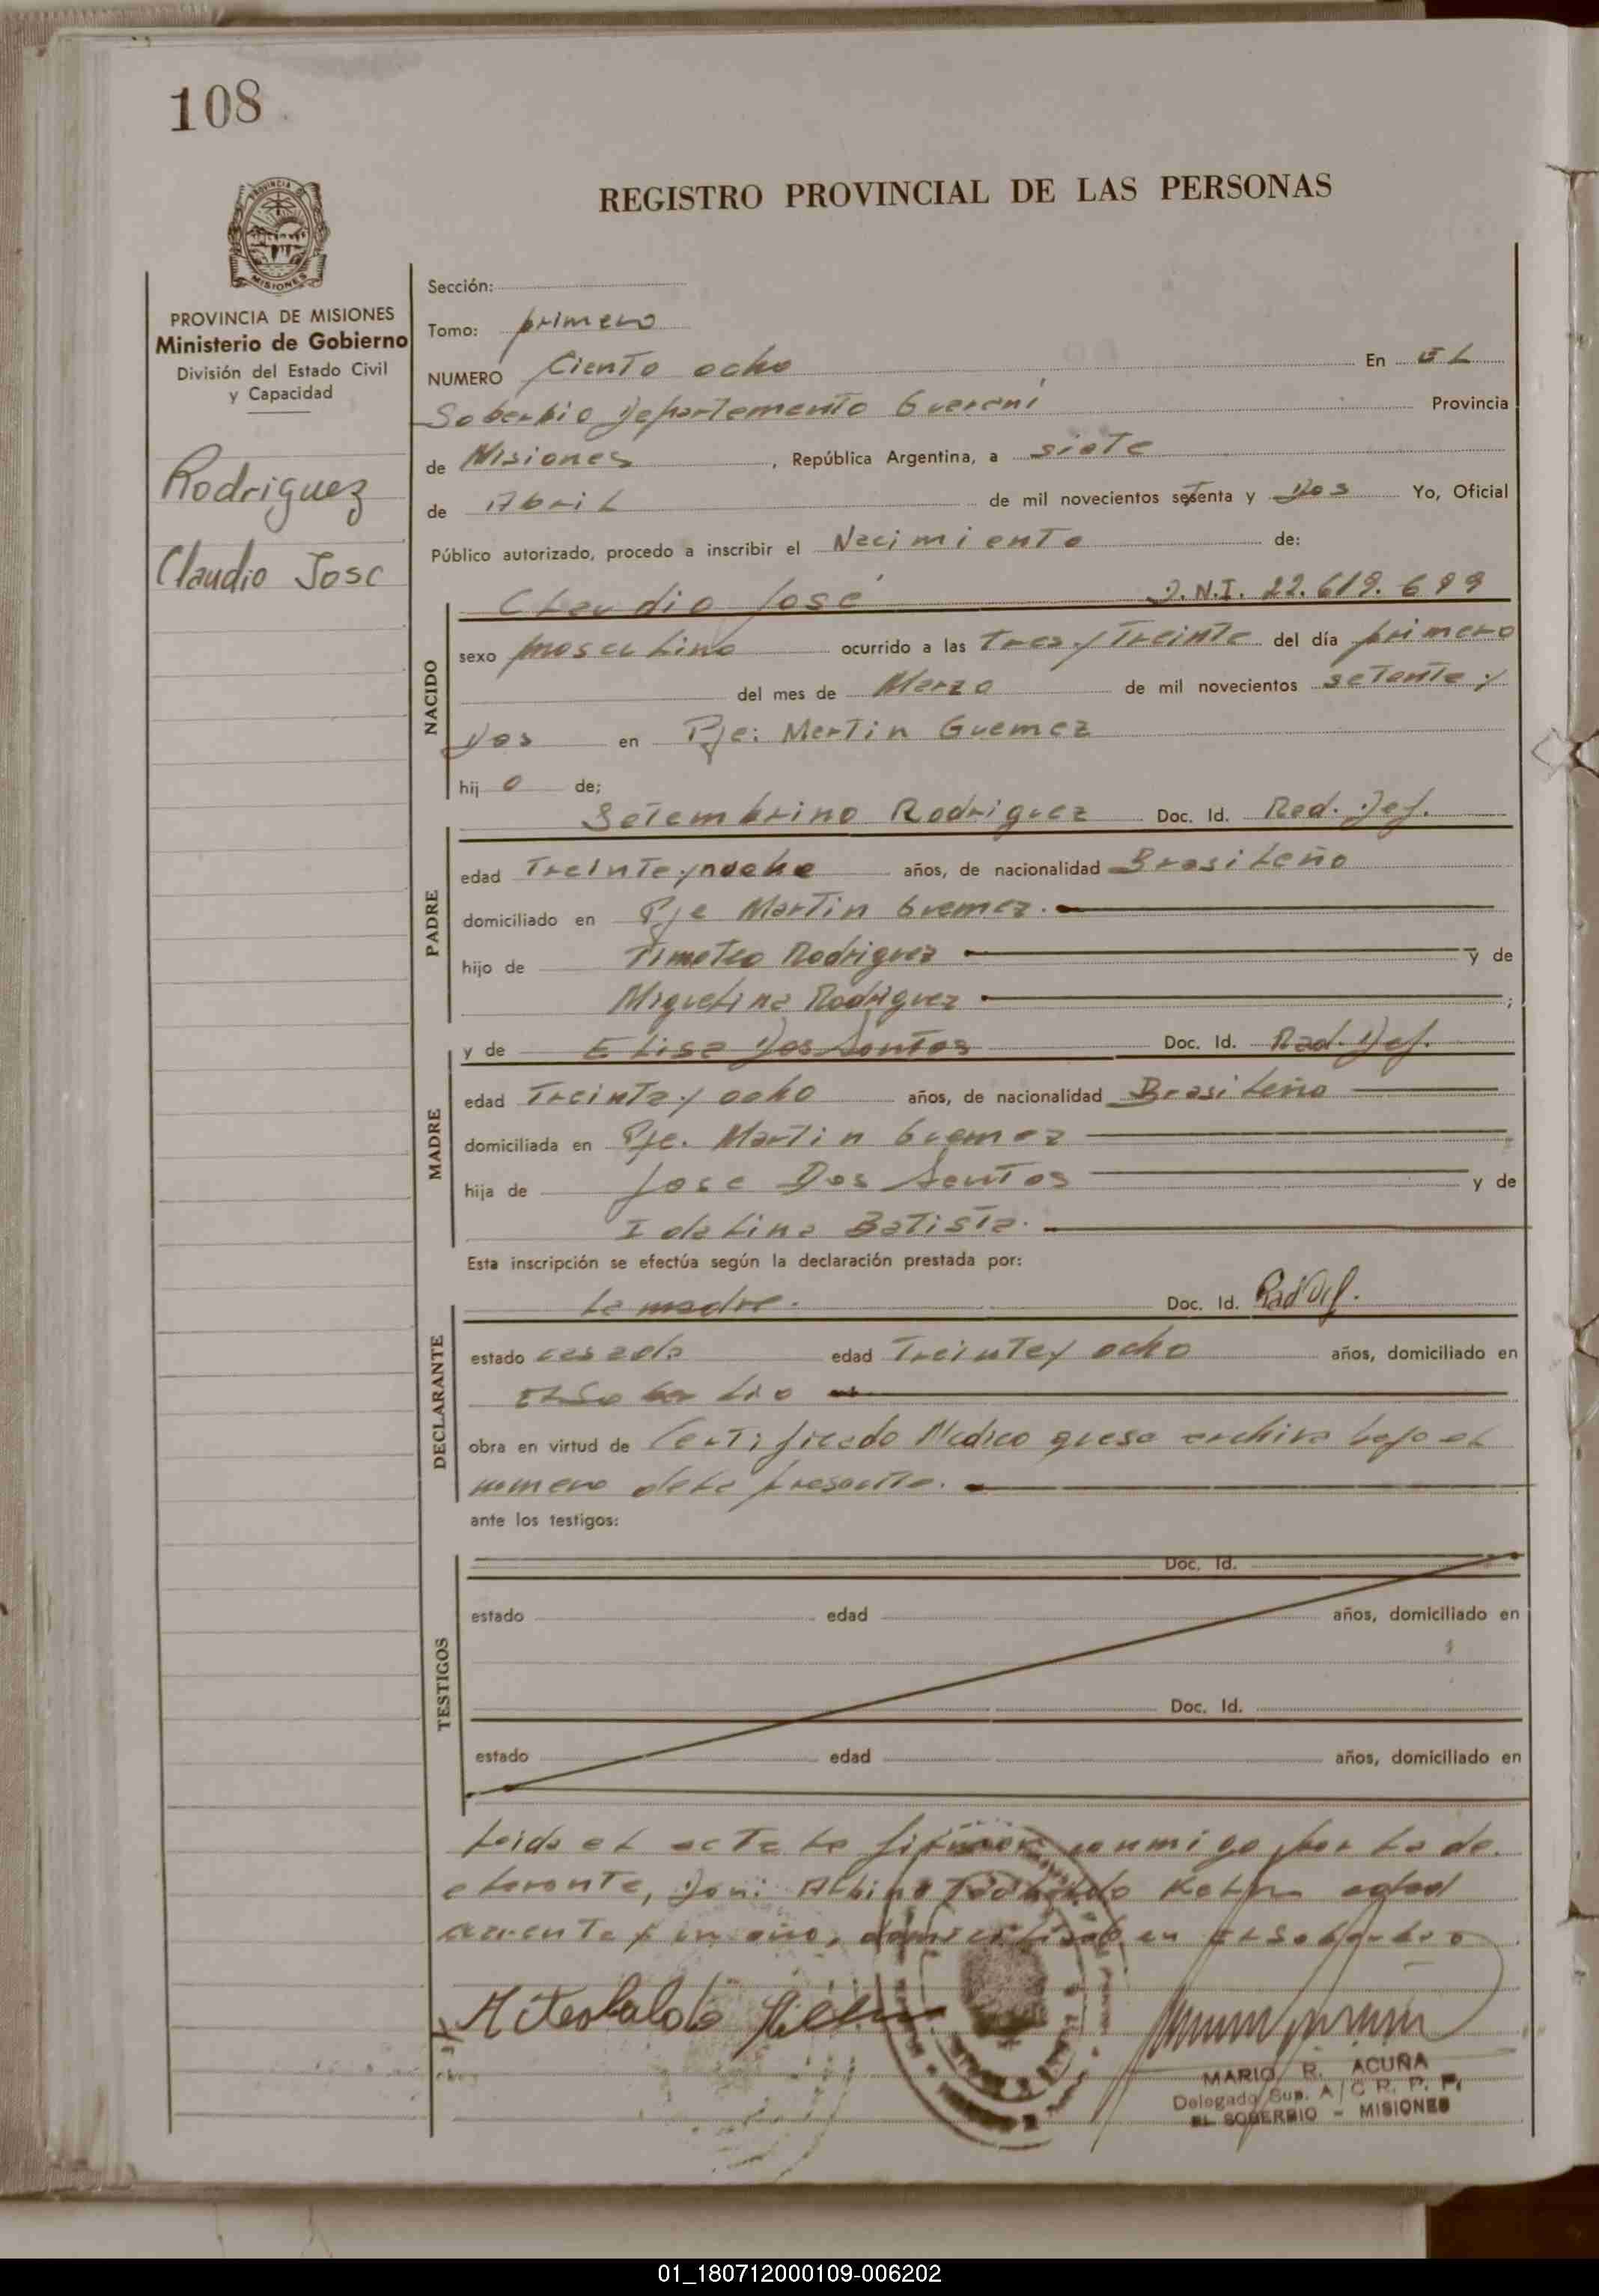 108
REGISTRO PROVINCIAL DE LAS PERSONAS
PROVINCIA DE MISIONES
Ministerio de Gobierno
División del Estado Civil
y Capacidad
Rodriguez
Claudio Jose
Sección:
Tomo: primero
NUMERO Ciento ocho En El
Soberbio Departamento Guaraní Provincia
de Misiones, República Argentina, a siete
de Abril de mil novecientos setenta y Dos Yo, Oficial
Público autorizado, procedo a inscribir el Nacimiento de:
Claudio José D.N.I. 22.619.699
NACIDO
sexo masculino ocurrido a las Tres y Treinta del día primero
del mes de Marzo de mil novecientos setenta y
Dos en Pje: Martin Guemez
hij o de;
Setembrino Rodriguez Doc. Id. Rad. Def.
PADRE
edad Treinta y nocho años, de nacionalidad Brasileño
domiciliado en Pje Martin Guemez.
hijo de Timoteo Rodriguez y de
Miguelina Rodriguez ;
y de Elisa Dos Santos Doc. Id. Rad. Def.
MADRE
edad Treinta y ocho años, de nacionalidad Brasileña
domiciliada en Pje. Martin Guemez
hija de Jose Dos Santos y de
Idalina Batista.
Esta inscripción se efectúa según la declaración prestada por:
La madre. Doc. Id. Rad Def.
DECLARANTE
estado casada edad Treinta y ocho años, domiciliado en
El Soberbio
obra en virtud de Certificado Medico que se archiva bajo el
numero de la presente.
ante los testigos:
Doc. Id.
TESTIGOS
estado edad años, domiciliado en
Doc. Id.
estado edad años, domiciliado en
Leida el acta la firman conmigo por la de
clarante, Don: Albino edad
cuarenta y un año, domicilisado en El Soberbio
MARIO R. ACUÑA
Delegado Sup. A/C R. P. P.
EL SOBERBIO - MISIONES
01_180712000109-006202